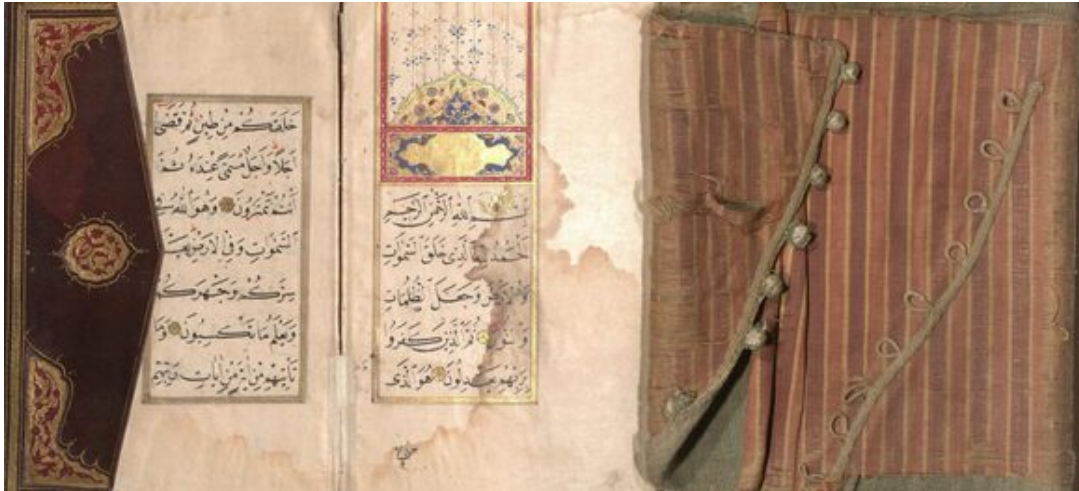 بسم الله الرحمن الرحيم
الحمد لله الذى خلق السموات
والارض وجعل الظلمات
والنور ثم الذين كفروا
بربهم يعدلون هو الذى
خلقكم
خلقكم من طين ثم قضى
اجلا واجل مسمى عنده ثم
انتم تمترون وهو الله فى
السموات وفى الارض يعلم
سركم وجهركم
ويعلم ما تكسبون وما
تاتيهم من اية من ايات ربهم